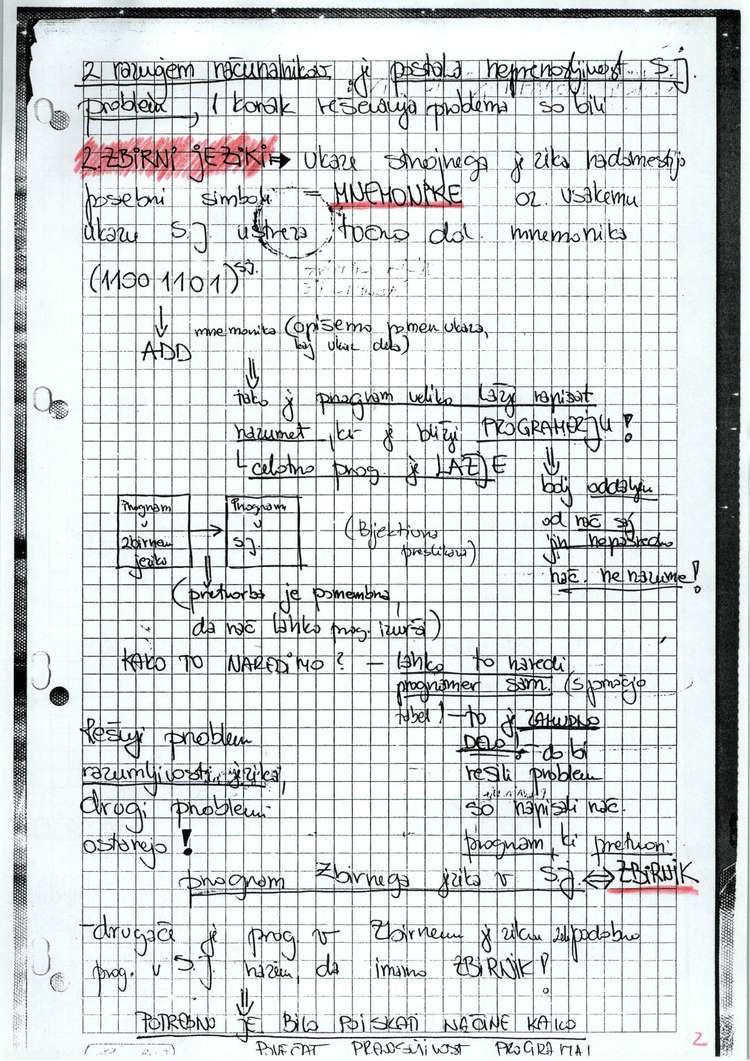 Z razvojem računalnikov je postala neprenosljivost S.J.
problem, 1 korak reševanja problema so bili
2. ZBIRNI JEZIKI ⇒ ukaze strojnega jezika nadomestijo
posebni simboli = MNEMONIKE oz. vsakemu
ukazu S.J. ustreza točno dol. mnemonika
(1100 1101)SJ.
↓
ADD
mnemonika (opišemo pomen ukaza,
kaj ukaz dela)
⇓
tako je program veliko lažje napisat
razumet, ki je bližji PROGRAMERJU!
celotno prog. je LAŽJE
⇓
bolj oddaljen
od rač saj
jih neposredno
rač. ne razume!
Program
v
zbirnem
jeziku
→
Program
v
S.J.
(Bijektivna
preslikava)
(pretvorba je pomembna,
da rač lahko prog. izvrši)
KAKO TO NAREDIMO? - lahko to naredi
programer sam. (s pomočjo
tabel!) - to je ZAMUDNO
DELO! - da bi
rešili problem
so napisali rač.
program, ki pretvori
Rešuje problem
razumljivosti jezika,
drugi problemi
ostanejo!
program zbirnega jezika v S.J. ⇔ ZBIRNIK
- drugače je prog v zbirnem jeziku podobno
prog. v S.J. razen, da imamo ZBIRNIK!
⇓
POTREBNO JE BILO POISKATI NAČINE KAKO
POVEČAT PRENOSLJIVOST PROGRAMA!
2